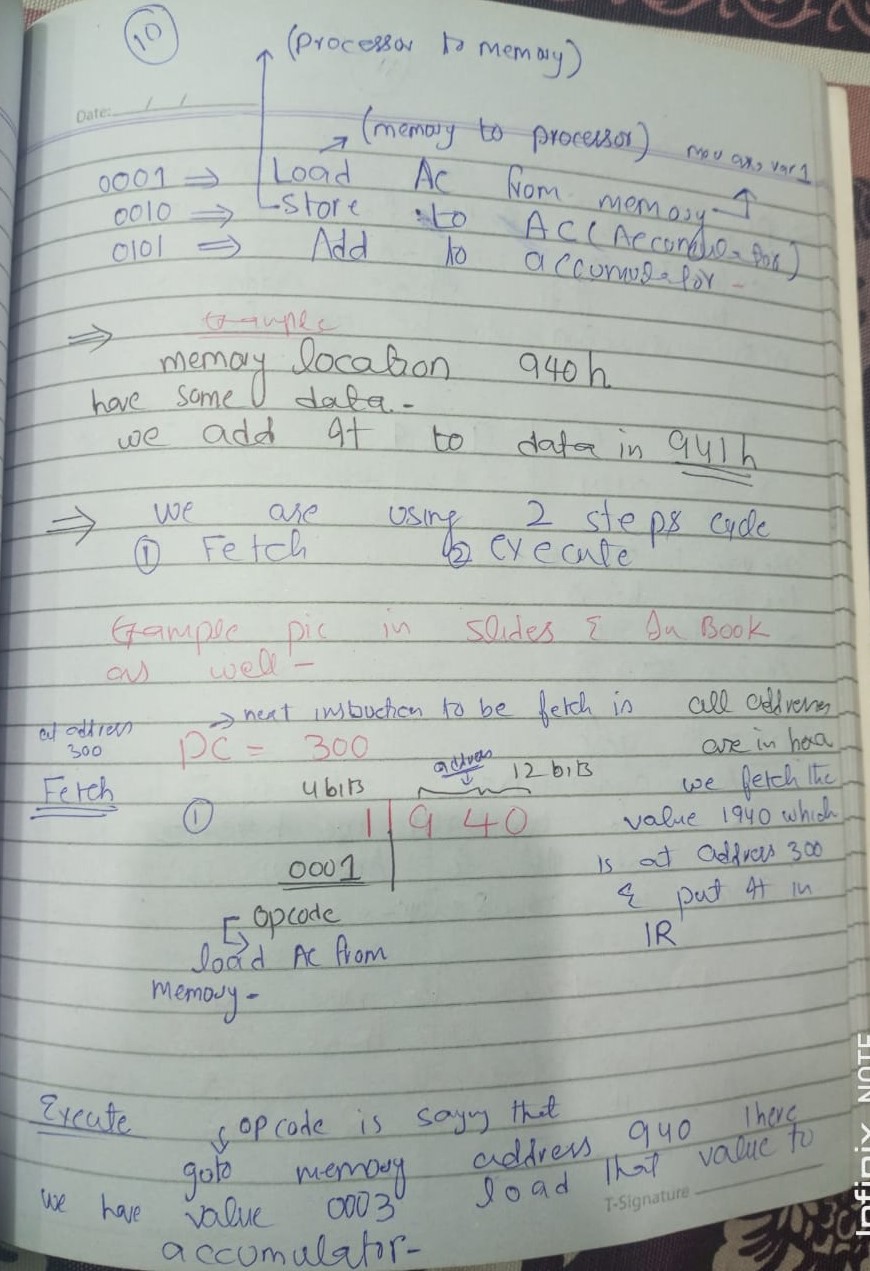 10
(processor to memory)
Date: / /
(memory to processor)
mov ax, var1
0001 ⇒ Load AC from memory
0010 ⇒ Store to AC (Accumulator)
0101 ⇒ Add to accumulator -
⇒ Example
memory location 940h
have some data -
we add it to data in 941h
⇒ we are using 2 steps cycle
① Fetch ② execute
Example pic in slides & In Book
as well -
→ next instruction to be fetch in
at address
300
PC = 300
all addresses
are in hexa
Fetch
4 bits
address
12 bits
① 1 | 940
0001
opcode
load AC from
memory -
we fetch the
value 1940 which
is at address 300
& put it in
IR
Execute
opcode is saying that
goto memory address 940 there
we have value 0003 load that value to
accomulator -
T-Signature
Infinix NOTE